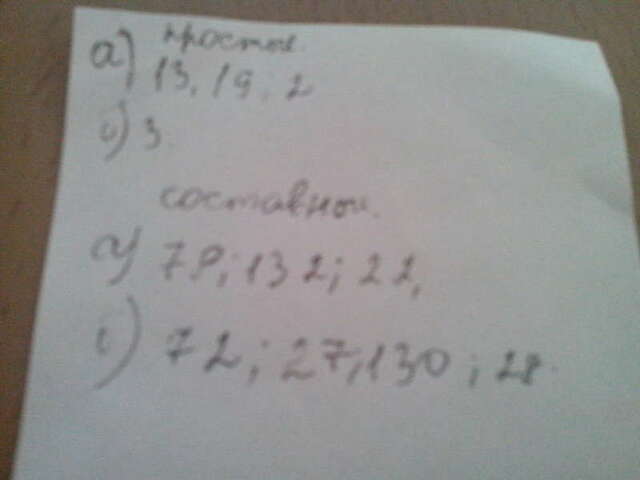 простые.
а) 13, 19, 2
с) 3.
составной.
а) 78; 132; 22,
с) 72; 27, 130; 28.